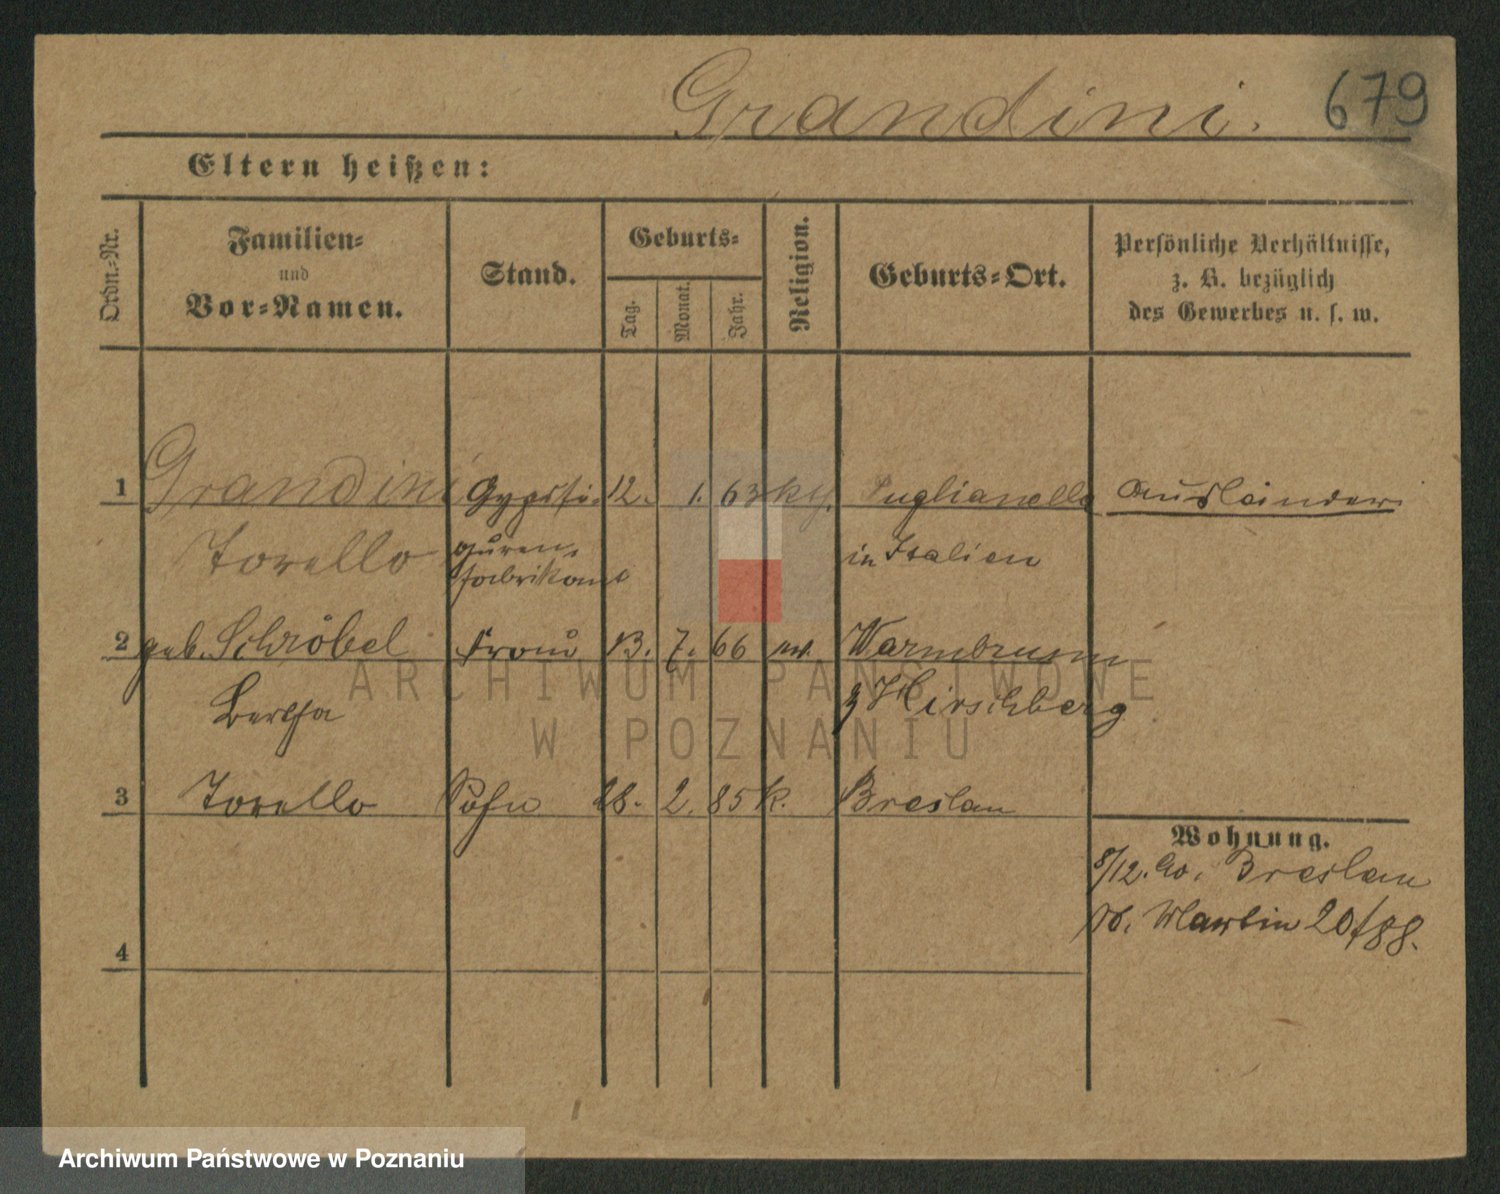 Grandini. 679
Eltern heißen:
Ordn.-Nr. Familien- und Vor-Namen. Stand. Geburts- Tag. Monat. Jahr. Religion. Geburts-Ort. Persönliche Verhältnisse, z. B. bezüglich des Gewerbes u. s. w.
1 Grandini Gypsfi- 12. 1. 63 kth. Puglianella Ausländer.
Torello guren- in Italien
fabrikant
2 geb. Schröbel Frau 13. 7. 66 ev. Warmbrunn
Bertha Hirschberg
3 Torello Sohn 28. 2. 85 k. Breslau
Wohnung.
8/12. 90. Breslau
St. Martin 20/88.
4
ARCHIWUM PAŃSTWOWE
W POZNANIU
Archiwum Państwowe w Poznaniu